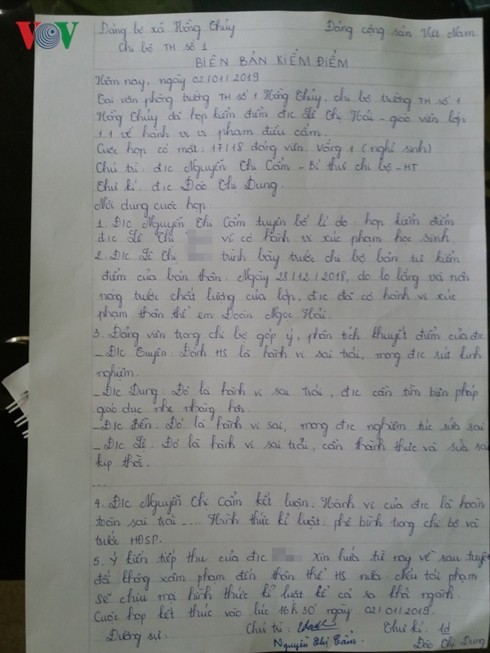 VOV
Đảng bộ xã Hồng Thủy Đảng cộng sản Việt Nam
Chi bộ TH số 1
BIÊN BẢN KIỂM ĐIỂM
Hôm nay, ngày 02/01/2019
Tại văn phòng trường TH số 1 Hồng Thủy, chi bộ trường TH số 1
Hồng Thủy đã họp kiểm điểm đ/c Lê Thị Hải - giáo viên lớp
1.1 về hành vi vi phạm điều cấm.
Cuộc họp có mặt: 17/18 đảng viên. Vắng 1 (nghỉ sinh)
Chủ trì: đ/c Nguyễn Thị Cẩm - Bí thư chi bộ - HT
Thư kí: đ/c Đào Thị Dung.
Nội dung cuộc họp
1. Đ/c Nguyễn Thị Cẩm tuyên bố lí do: họp kiểm điểm
đ/c Lê Thị vì có hành vi xúc phạm học sinh.
2. Đ/c Lê Thị trình bày trước chi bộ bản tự kiểm
điểm của bản thân. Ngày 28/12/2018, do lo lắng và nôn
nóng trước chất lượng của lớp, đ/c đã có hành vi xúc
phạm thân thể em Đoàn Ngọc Hải.
3. Đảng viên trong chi bộ góp ý, phân tích khuyết điểm của đ/c
- Đ/c Quyên: Đánh HS là hành vi sai trái, mong đ/c rút kinh
nghiệm.
- Đ/c Dung: Đó là hành vi sai trái, đ/c cần tìm biện pháp
giáo dục nhẹ nhàng hơn.
- Đ/c Bến: Đó là hành vi sai, mong đ/c nghiêm túc sửa sai
- Đ/c Lê: Đó là hành vi sai trái, cần thành thực và sửa sai
kịp thời.
...
4. Đ/c Nguyễn Thị Cẩm kết luận: Hành vi của đ/c là hoàn
toàn sai trái .... Hình thức kỉ luật: phê bình trong chi bộ và
trước HĐSP.
5. Ý kiến tiếp thu của đ/c Xin hứa từ nay về sau tuyệt
đối không xâm phạm đến thân thể HS nữa. Nếu tái phạm
sẽ chịu mọi hình thức kỉ luật kể cả ra khỏi ngành.
Cuộc họp kết thúc vào lúc 16h30 ngày 02/01/2019.
Đương sự: Chủ trì: Thư kí:
Nguyễn Thị Cẩm Đào Thị Dung